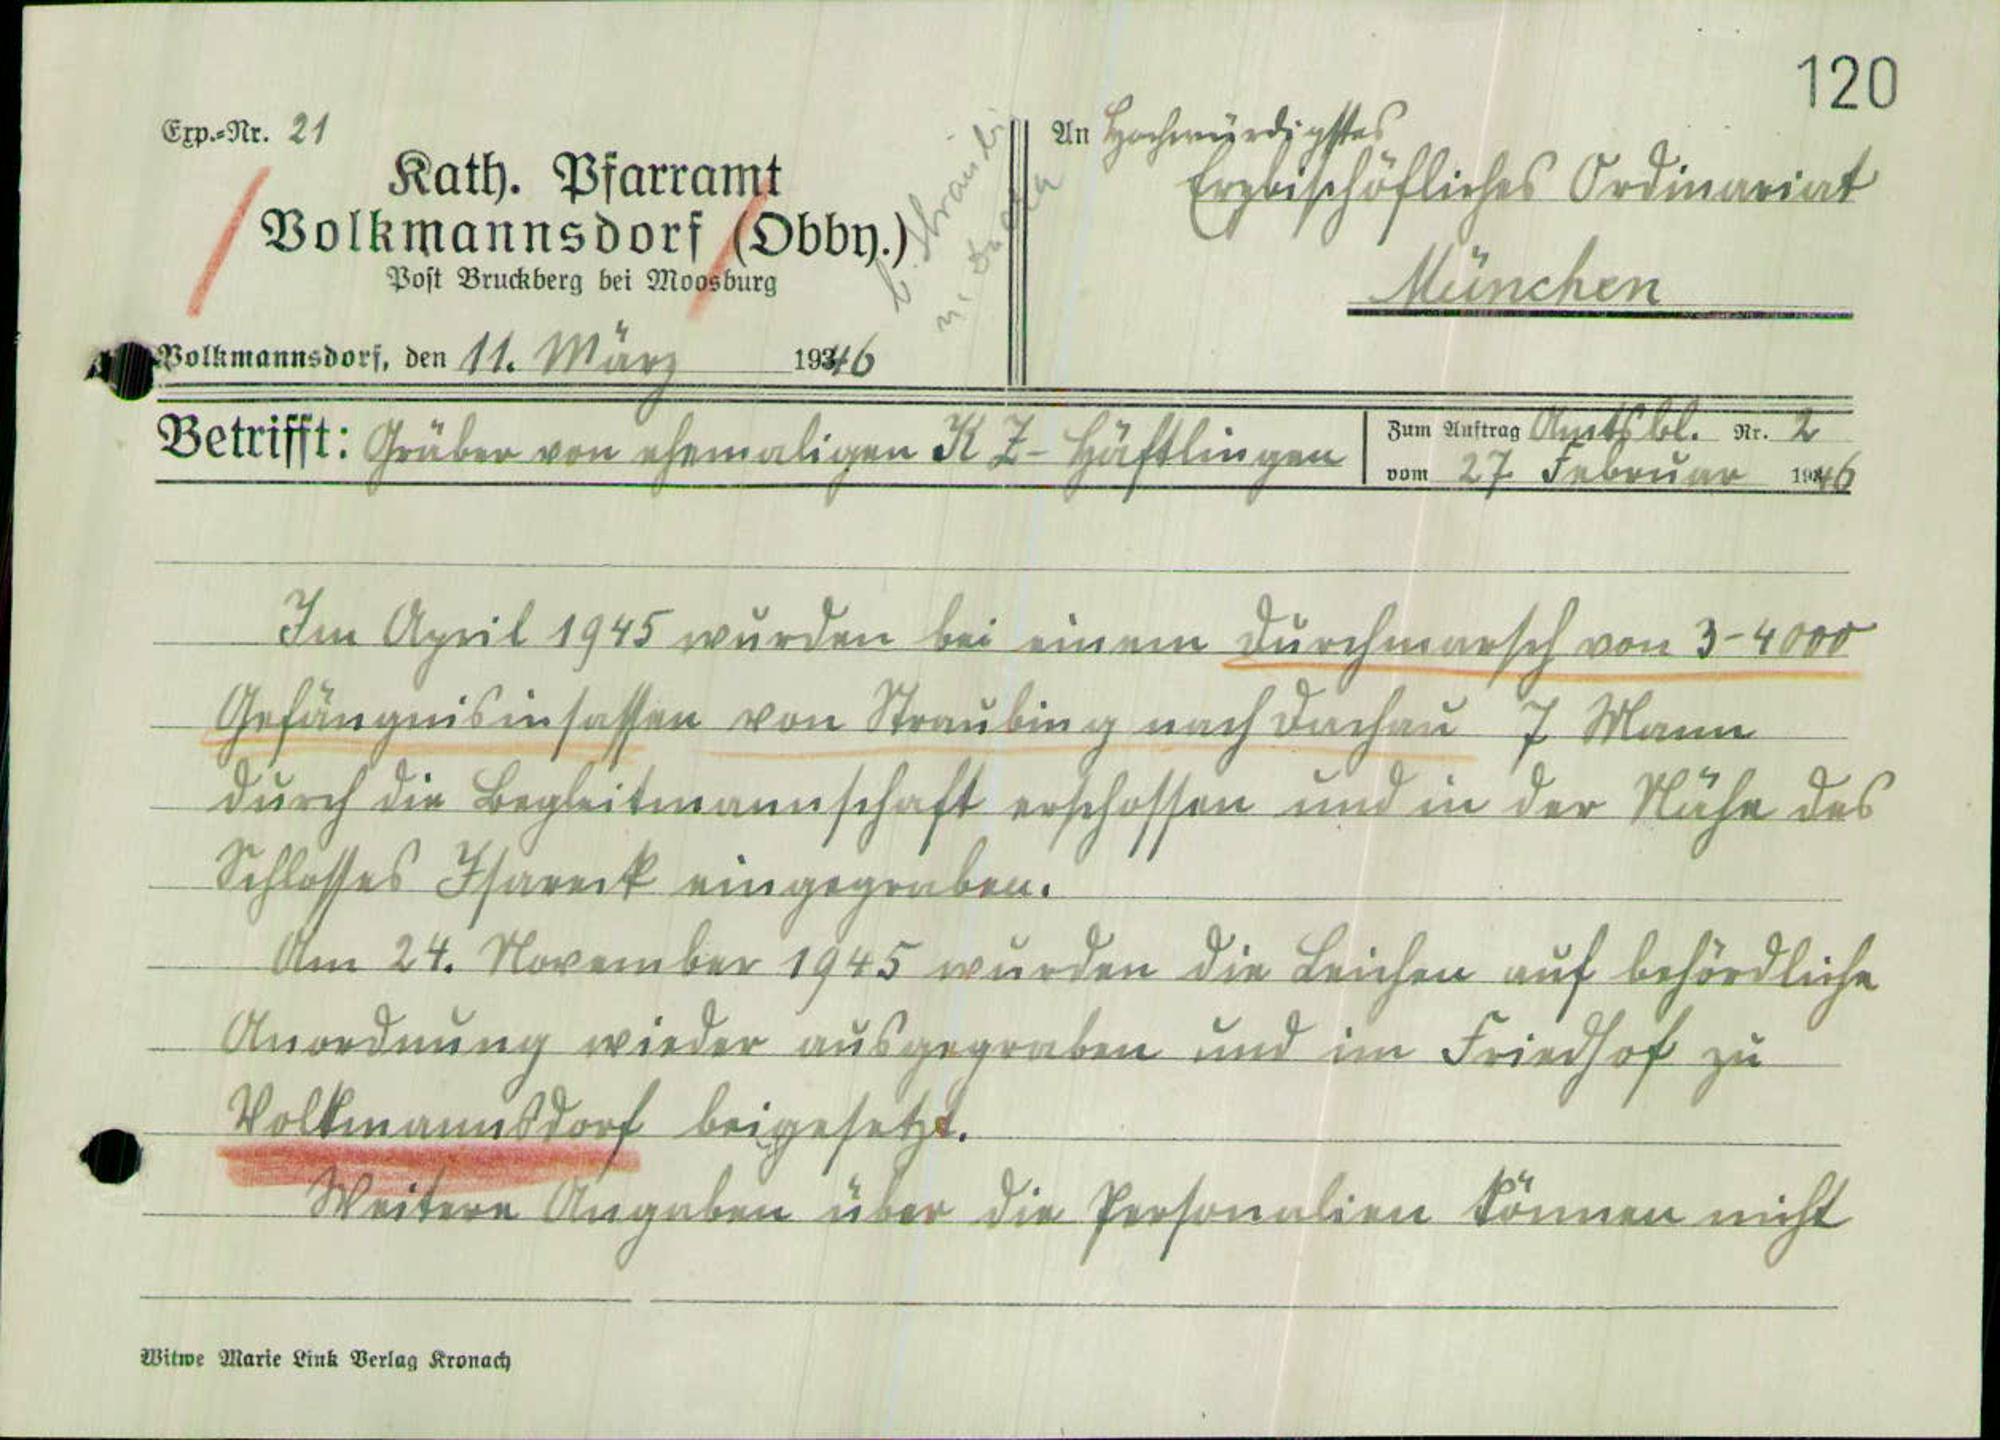 120
Exp.-Nr. 21
Kath. Pfarramt
Volkmannsdorf (Obby.)
Post Bruckberg bei Moosburg
Volkmannsdorf, den 11. März 1946
An Hochwürdigstes
Erzbischöfliches Ordinariat
München
Betrifft: Gräber von ehemaligen KZ-Häftlingen
Zum Auftrag Amtsbl. Nr. 2
vom 27. Februar 1946
Im April 1945 wurden bei einem Durchmarsch von 3-4000
Gefängnisinsassen von Straubing nach Dachau 7 Mann
durch die Begleitmannschaft erschossen und in der Nähe des
Schlosses Isareck eingegraben.
Am 24. November 1945 wurden die Leichen auf behördliche
Anordnung wieder ausgegraben und im Friedhof zu
Volkmannsdorf beigesetzt.
Weitere Angaben über die Personalien können nicht
Witwe Marie Link Verlag Kronach